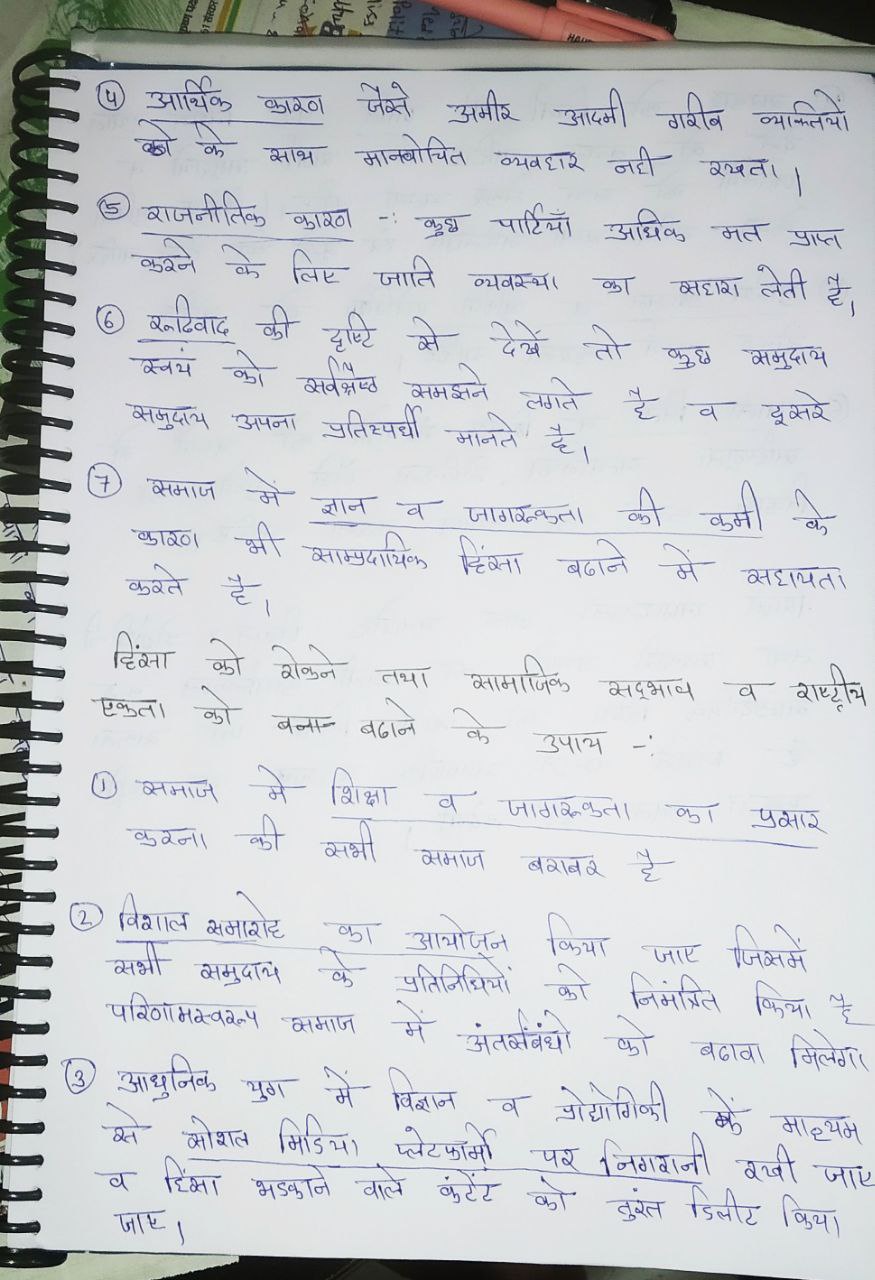 ④ आर्थिक कारण जैसे अमीर आदमी गरीब व्यक्तियों
के साथ मानवोचित व्यवहार नहीं रखता।
⑤ राजनीतिक कारण -: कुछ पार्टियाँ अधिक मत प्राप्त
करने के लिए जाति व्यवस्था का सहारा लेती है।
⑥ रूढिवाद की दृष्टि से देखें तो कुछ समुदाय
स्वयं को सर्वश्रेष्ठ समझने लगते है व दूसरे
समुदाय अपना प्रतिस्पर्धी मानते है।
⑦ समाज में ज्ञान व जागरूकता की कमी के
कारण भी साम्प्रदायिक हिंसा बढाने में सहायता
करते है।
हिंसा को रोकने तथा सामाजिक सदभाव व राष्ट्रीय
एकता को बना- बढाने के उपाय -:
① समाज मे शिक्षा व जागरूकता का प्रसार
करना की सभी समाज बराबर है
② विशाल समारोह का आयोजन किया जाए जिसमें
सभी समुदाय के प्रतिनिधियों को निमंत्रित किया है
परिणामस्वरूप समाज में अंतर्संबंधो को बढावा मिलेगा।
③ आधुनिक युग में विज्ञान व प्रोद्योगिकी के माध्यम
से सोशल मिडिया प्लेटफार्मो पर निगरानी रखी जाए
व हिंसा भडकाने वाले कंटेंट को तुरंत डिलीट किया
जाए।